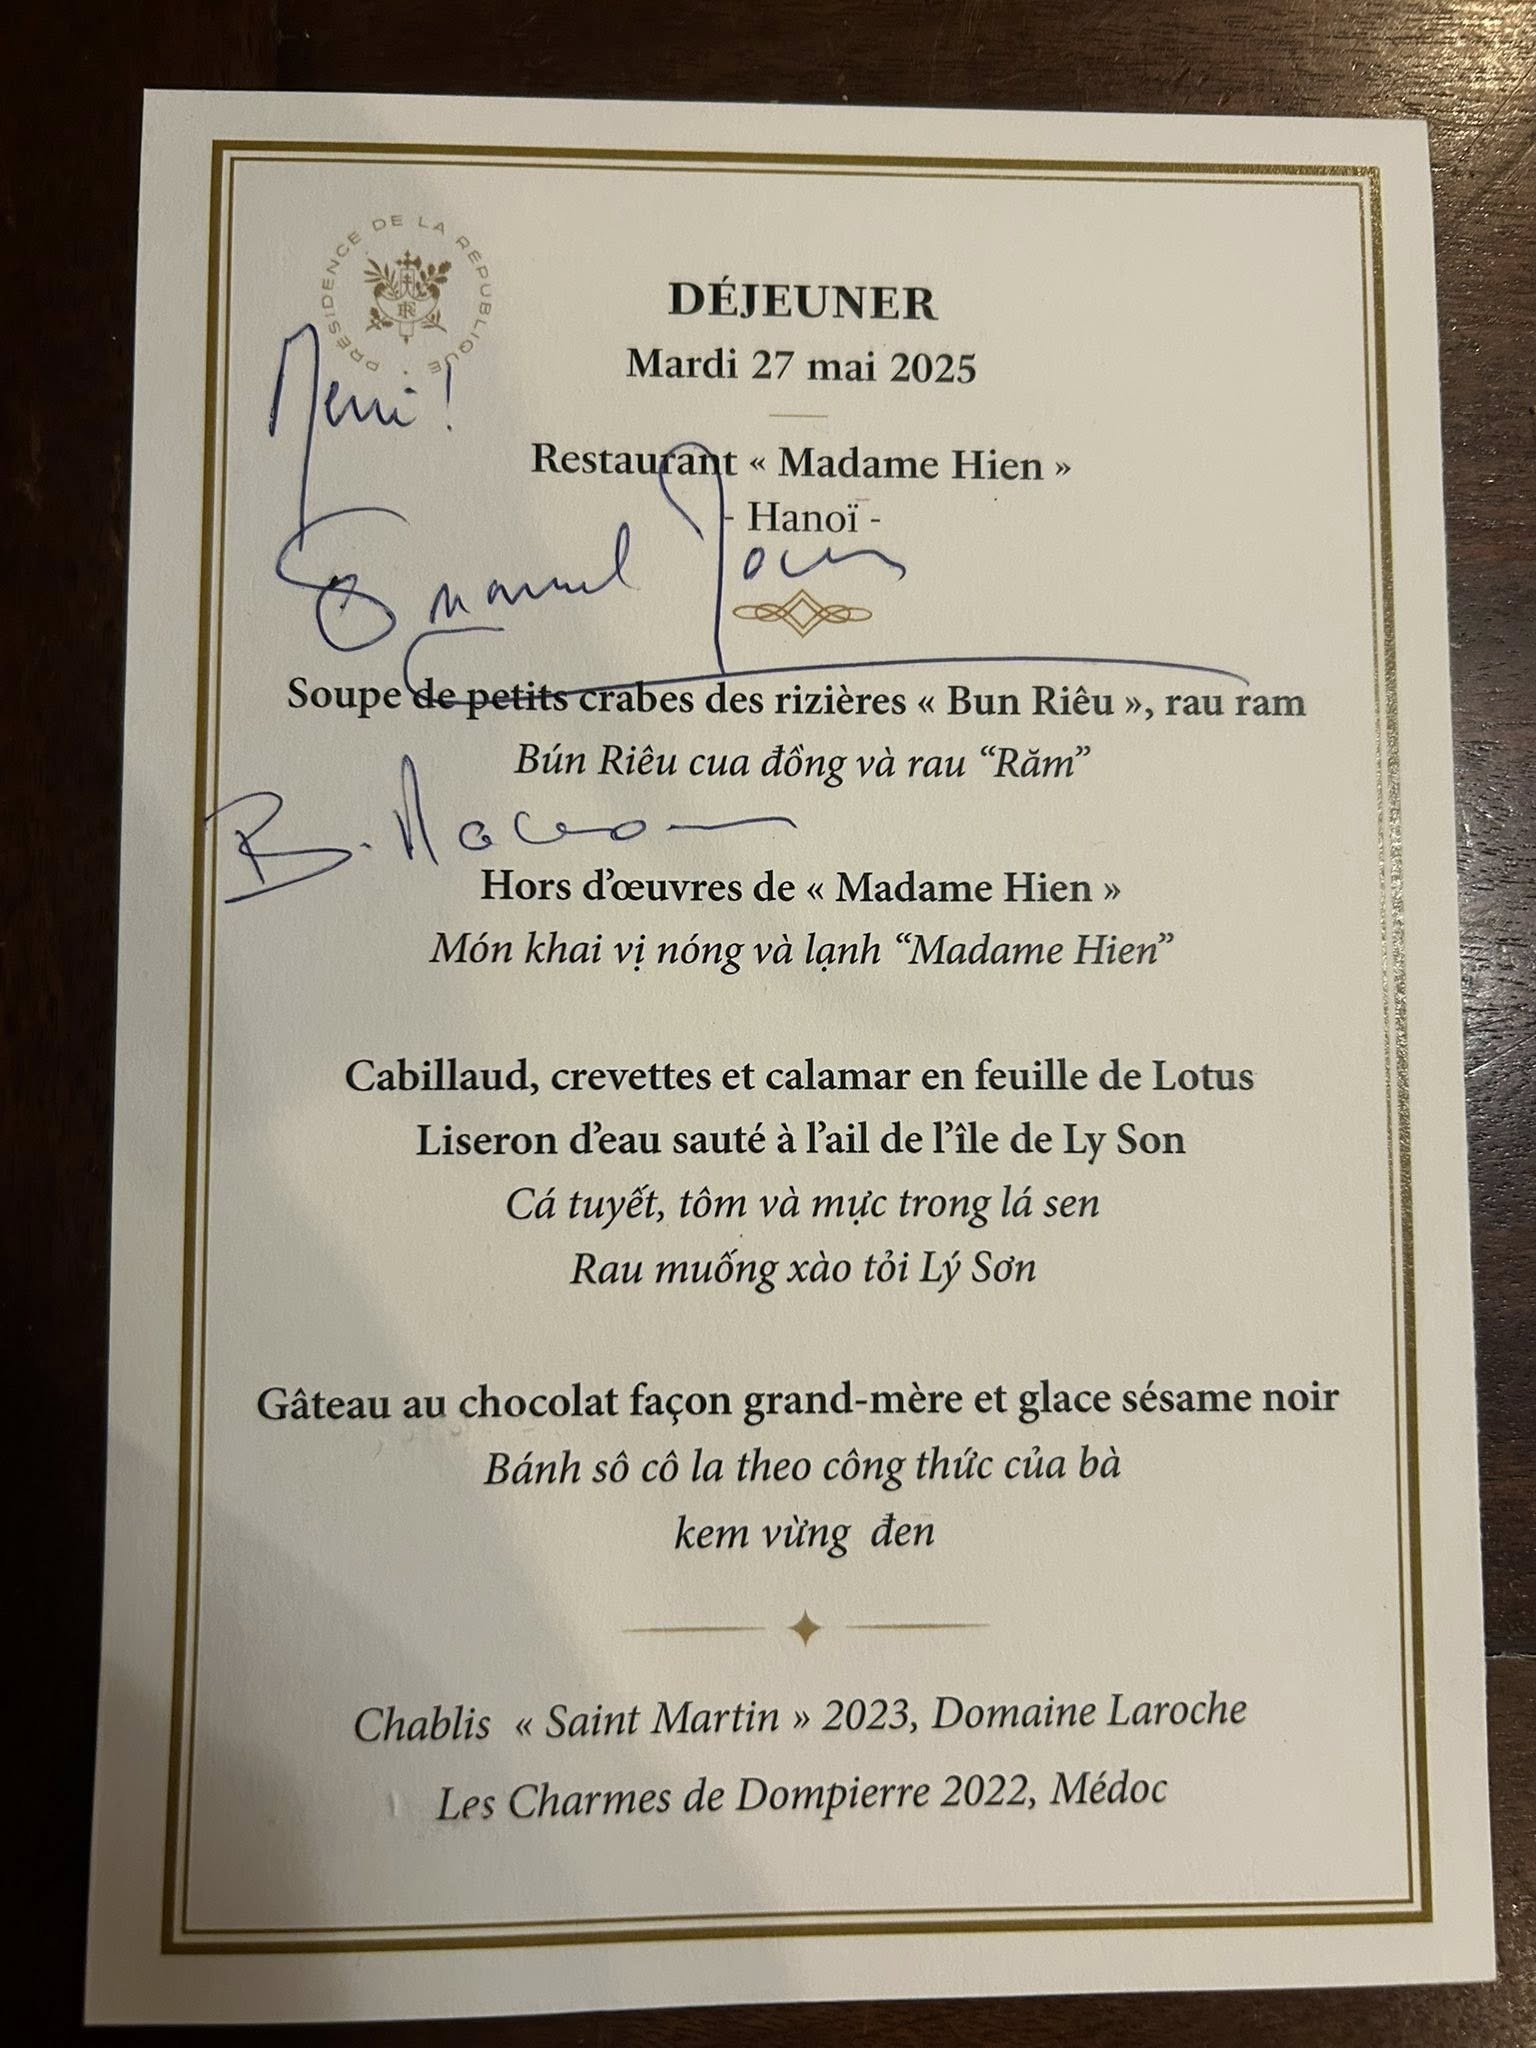 PRÉSIDENCE DE LA RÉPUBLIQUE
RF
DÉJEUNER
Mardi 27 mai 2025
Merci !
Restaurant « Madame Hien »
- Hanoï -
Emmanuel Macron
Soupe de petits crabes des rizières « Bun Riêu », rau ram
Bún Riêu cua đồng và rau “Răm”
B. Macron
Hors d’œuvres de « Madame Hien »
Món khai vị nóng và lạnh “Madame Hien”
Cabillaud, crevettes et calamar en feuille de Lotus
Liseron d’eau sauté à l’ail de l’île de Ly Son
Cá tuyết, tôm và mực trong lá sen
Rau muống xào tỏi Lý Sơn
Gâteau au chocolat façon grand-mère et glace sésame noir
Bánh sô cô la theo công thức của bà
kem vừng đen
Chablis « Saint Martin » 2023, Domaine Laroche
Les Charmes de Dompierre 2022, Médoc